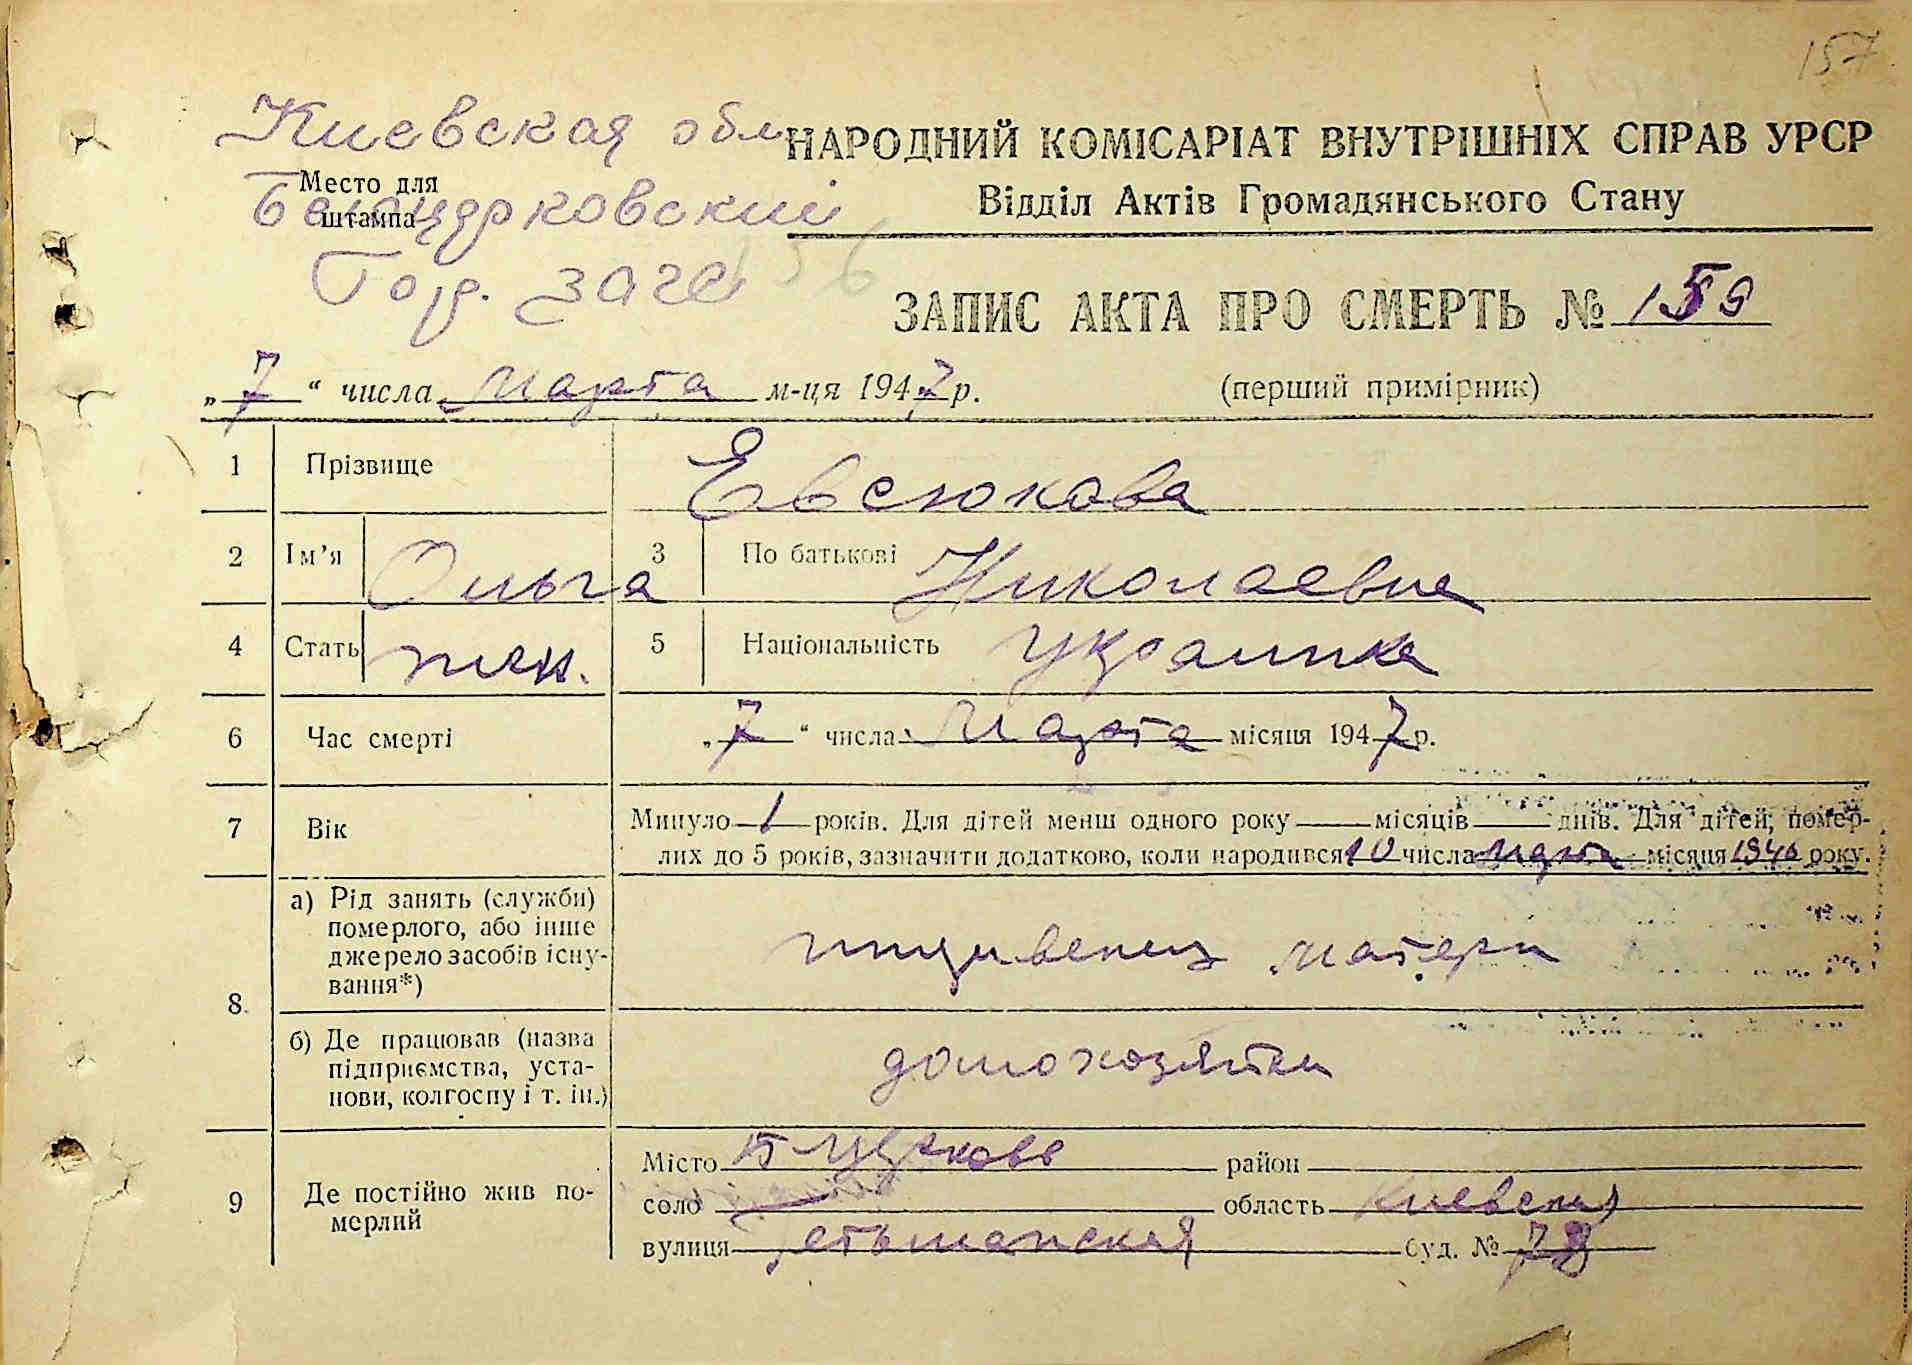 157
Киевская обл.
НАРОДНИЙ КОМІСАРІАТ ВНУТРІШНІХ СПРАВ УРСР
Место для
штампа
Белоцерковский
Відділ Актів Громадянського Стану
Гор. загс
156
ЗАПИС АКТА ПРО СМЕРТЬ № 159
„7“ числа Марта м-ця 1947 р.
(перший примірник)
1 Прізвище Евсюкова
2 Ім’я Ольга 3 По батькові Николаевна
4 Стать жен. 5 Національність украинка
6 Час смерті „7“ числа Марта місяця 1947 р.
7 Вік Минуло 1 років. Для дітей менш одного року місяців днів. Для дітей, помер-
лих до 5 років, зазначити додатково, коли народився 10 числа місяця 1946 року.
8 а) Рід занять (служби)
померлого, або інше
джерело засобів існу-
вання*)
иждивенец матери
б) Де працював (назва
підприємства, уста-
нови, колгоспу і т. ін.)
домохозяйки
9 Де постійно жив по-
мерлий
Місто Б Церковь район
село область Киевская
вулиця Гетьманская буд. № 78